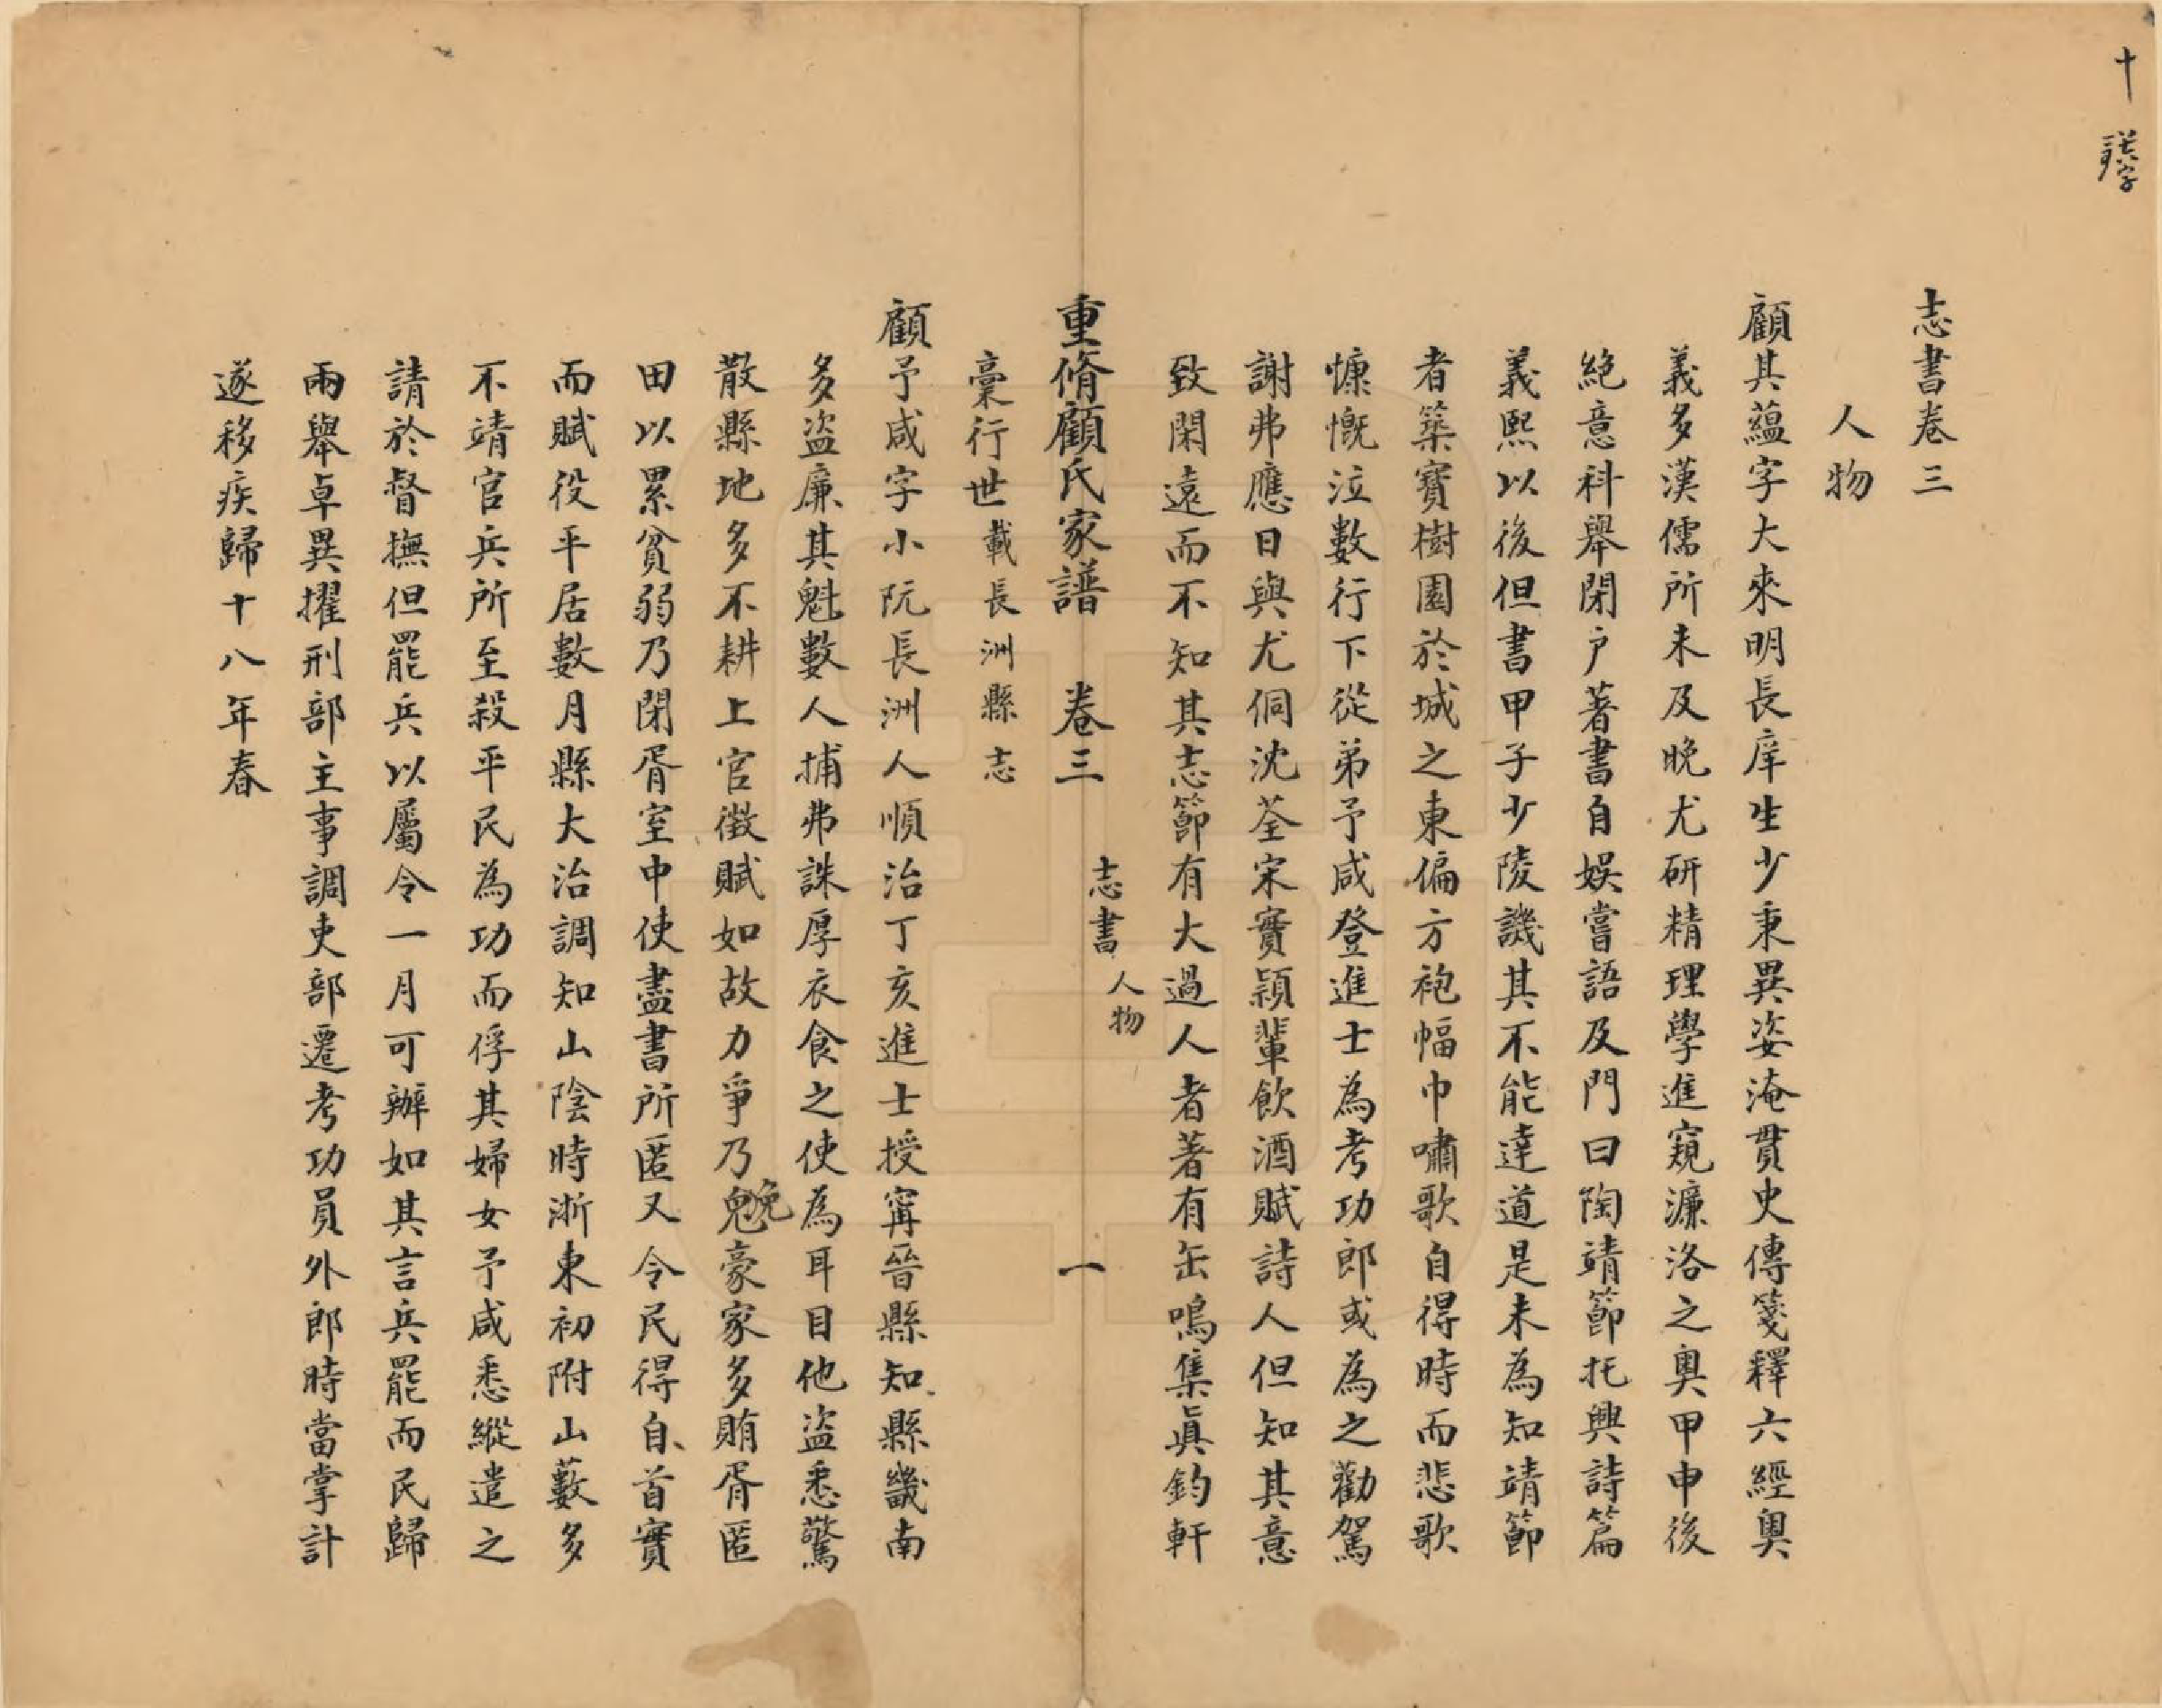 十
志書卷三
人物
顧其蘊字大來明長庠生少秉異姿淹貫史傳箋釋六經奧
義多漢儒所未及晚尤研精理學進窺濂洛之奧甲申後
絕意科舉閉户著書自娛嘗語及門曰陶靖節托興詩篇
義熙以後但書甲子少陵譏其不能達道是未為知靖節
者築寶樹園於城之東偏方袍幅巾嘯歌自得時而悲歌
慷慨泣數行下從弟予咸登進士為考功郎或為之勸駕
謝弗應日與尤侗沈荃宋實穎輩飲酒賦詩人但知其意
致閑遠而不知其志節有大過人者著有缶鳴集眞鈞軒
重脩顧氏家譜 卷三 志書 人物 一
稾行世載長洲縣志
顧予咸字小阮長洲人順治丁亥進士授甯晉縣知縣畿南
多盜廉其魁數人捕弗誅厚衣食之使為耳目他盜悉驚
散縣地多不耕上官徵賦如故力爭乃免豪家多賄胥匿
田以累貧弱乃閉胥室中使盡書所匿又令民得自首實
而賦役平居數月縣大治調知山陰時浙東初附山藪多
不靖官兵所至殺平民為功而俘其婦女予咸悉縱遣之
請於督撫但罷兵以屬令一月可辦如其言兵罷而民歸
兩舉卓異擢刑部主事調吏部遷考功員外郎時當掌計
遂移疾歸十八年春